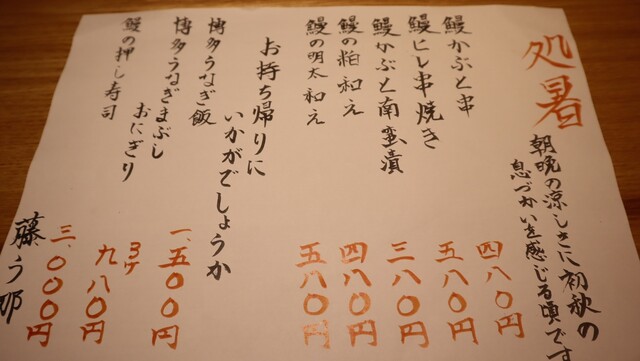 処暑
朝晩の涼しさに初秋の
息づかいを感じる頃です
鰻かぶと串 四八〇円
鰻ヒレ串焼き 五八〇円
鰻かぶと南蛮漬 三八〇円
鰻の粕和え 四八〇円
鰻の明太和え 五八〇円
お持ち帰りに
いかがでしょうか
博多うなぎ飯 一、五〇〇円
博多うなぎまぶし
おにぎり 3ケ 九八〇円
鰻の押し寿司 三、〇〇〇円
藤う那